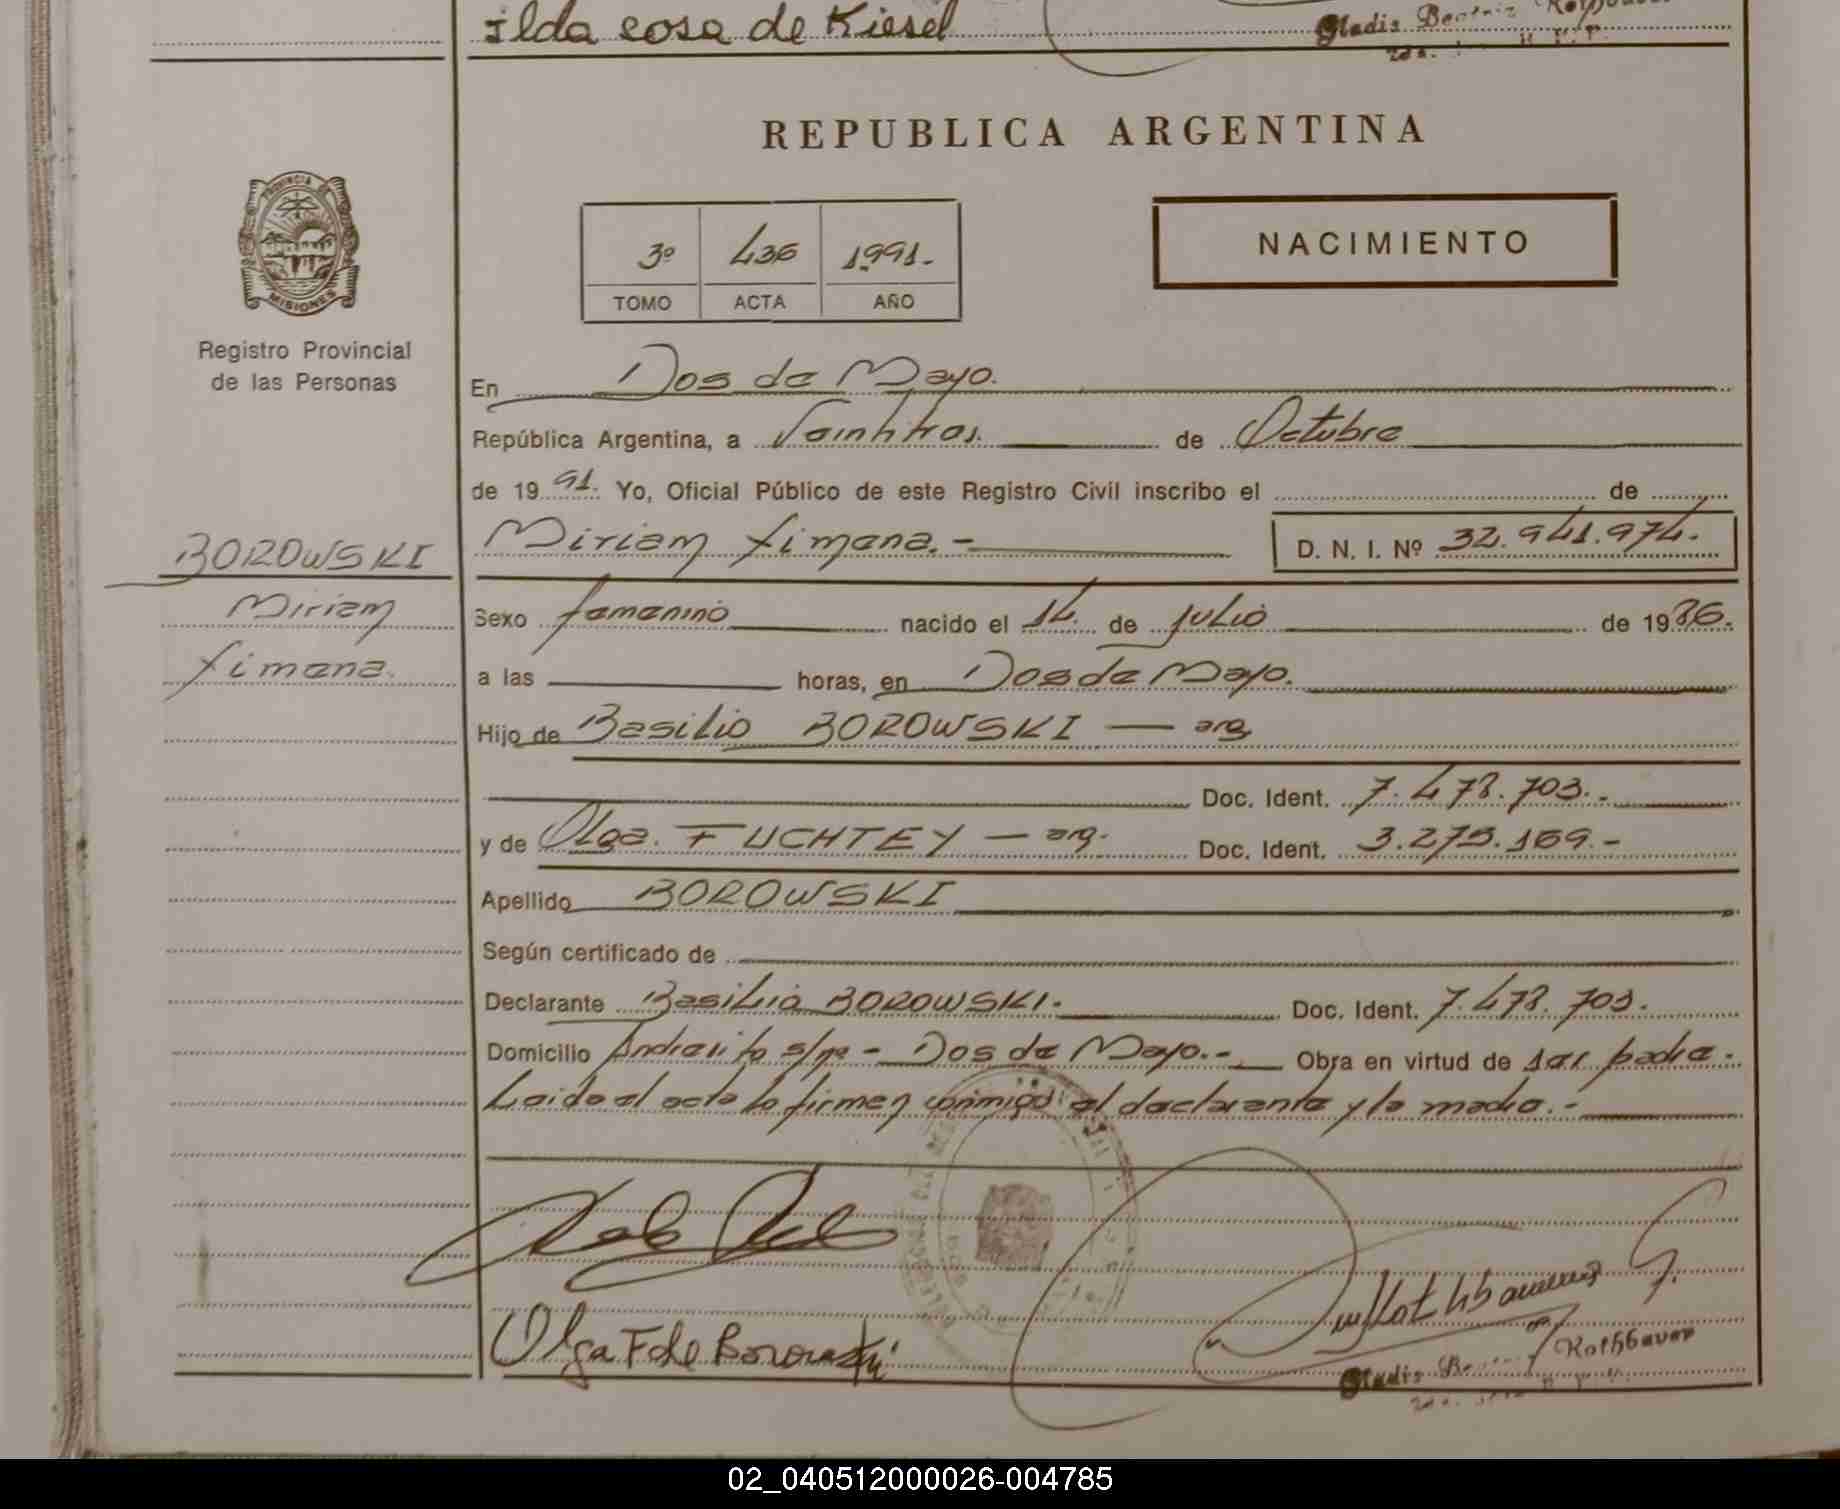 ilda cosa de Kiesel
Gladis Beatriz Rothbauer
REPUBLICA ARGENTINA
PROVINCIA DE
MISIONES
Registro Provincial
de las Personas
3º 436 1991.-
TOMO ACTA AÑO
NACIMIENTO
En Dos de Mayo.
República Argentina, a Veintitres. de Octubre
de 19 91. Yo, Oficial Público de este Registro Civil inscribo el de
Miriam Ximena.- D. N. I. Nº 32.941.974.
BOROWSKI
Miriam
Ximena.
Sexo femenino nacido el 14. de julio de 1986.
a las horas, en Dos de Mayo.
Hijo de Basilio BOROWSKI — arg
Doc. Ident. 7.478.703.-
y de Olga. FUCHTEY — arg. Doc. Ident. 3.275.169.-
Apellido BOROWSKI
Según certificado de
Declarante Basilio BOROWSKI. Doc. Ident. 7.478.703.
Domicilio Andresito s/nº - Dos de Mayo.- Obra en virtud de ser padre.
Leido el acta la firmen conmigo el declarante y la madre.-
Olga F de Borowski
Gladis Beatriz Rothbauer
02_040512000026-004785